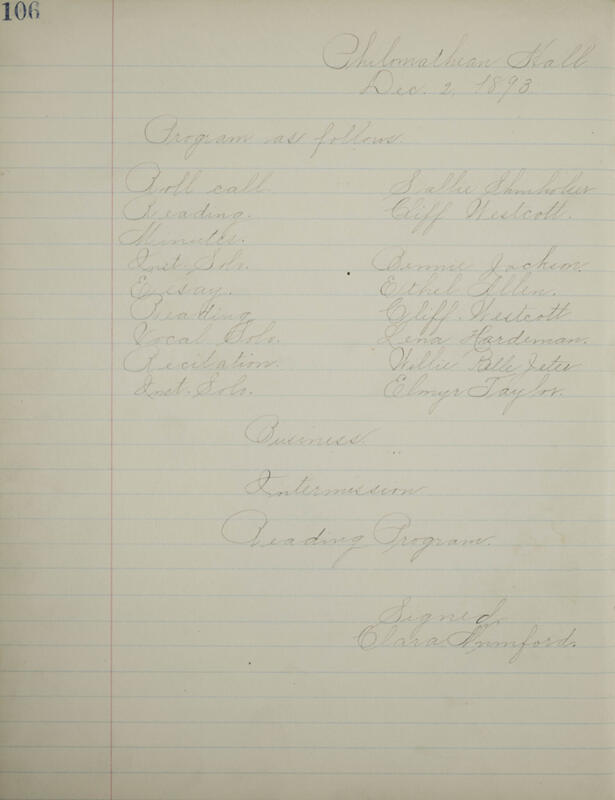 106
Philomathean Hall
Dec. 2, 1893
Program as follows.
Roll call. Sallie
Reading. Cliff Westcott.
Minutes.
Inst. Solo. Bennie Jackson.
Essay. Ethel Allen.
Reading Cliff. Westcott
Vocal Solo. Lena Hardeman.
Recitation. Willie Belle Jeter
Inst. Solo. Elmyr Taylor.
Business.
Intermission
Reading Program.
Signed,
Clara Mumford.